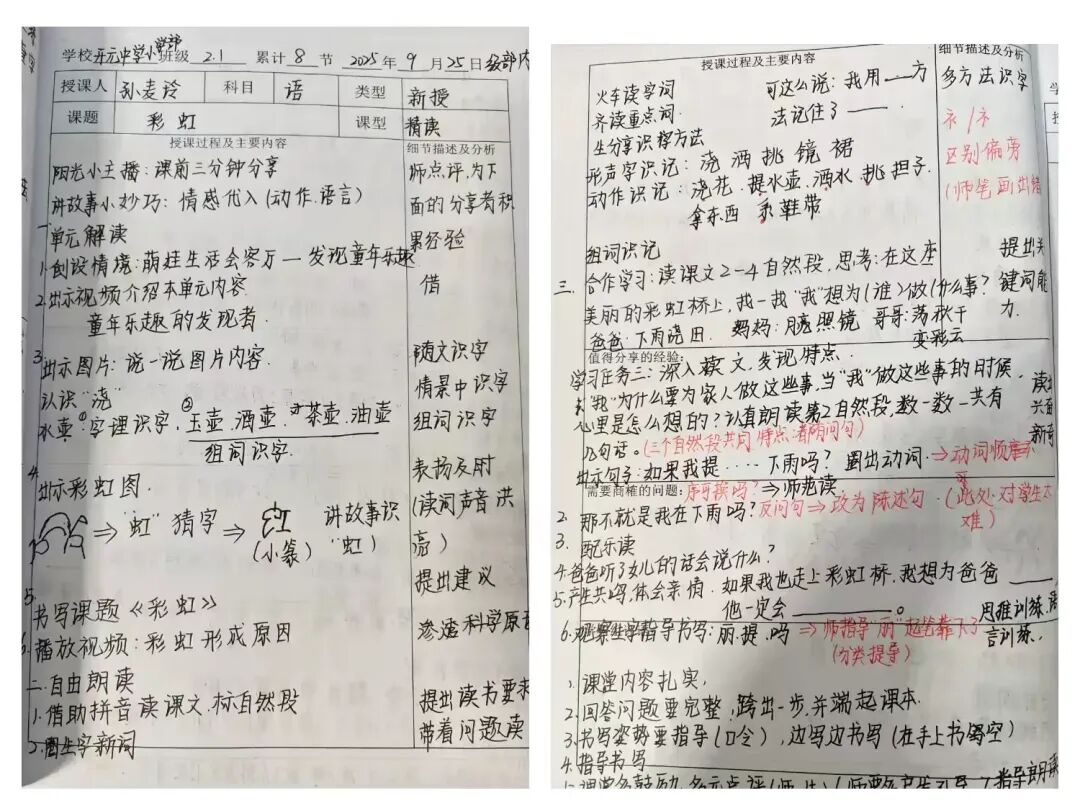 学校 开元中学小学部 班级 2.1 累计 8 节 2025 年 9 月 25 日 级部内
授课人 孙麦玲 科目 语 类型 新授
课题 彩虹 课型 精读
授课过程及主要内容 细节描述及分析
阳光小主播:课前三分钟分享 师点评,为下
讲故事小妙巧:情感代入(动作.语言) 面的分享者积
一单元解读 累经验
1.创设情境:萌娃生活会客厅—发现童年乐趣
2.出示视频介绍本单元内容 借
童年乐趣的发现者.
3.出示图片:说一说图片内容. 随文识字
认识“浇” 情景中识字
水壶 ①字理识字, ②玉壶.酒壶.茶壶.油壶 组词识字
组词识字.
4.出示彩虹图. 表扬及时
⇒“虹”猜字⇒ 虹 讲故事识 (读词声音洪
(小篆) “虹”) 亮)
提出建议
5.书写课题《彩虹》
6.播放视频:彩虹形成原因 渗透科学原
二.自由朗读
1.借助拼音读课文.标自然段 提出读书要求
2.圈生字新词 带着问题读
授课过程及主要内容 细节描述及分析
火车读字词 可这么说:我用——方 多方法识字
齐读重点词. 法记住了——.
生分享识字方法 衤/礻
形声字识记:浇 洒 挑 镜 裙 区别偏旁
动作识记:浇花.提水壶.洒水.挑担子. (师笔画出错
拿东西 系鞋带
组词识记 提出关
三.合作学习:读课文2-4自然段,思考:在这本 键词能
美丽的彩虹桥上,找一找“我”想为(谁)做(什么事? 力.
爸爸:下雨浇田. 妈妈:月亮照镜 哥哥:荡秋千
变彩云
值得分享的经验:
学习任务三:深入读文,发现特点.
1.“我”为什么要为家人做这些事,当“我”做这些事的时候,
心里是怎么想的?认真朗读第2自然段,数一数一共有
几句话。(三个自然段共同特点:都有问句)
出示句子:如果我提····下雨吗? 圈出动词.⇒动词顺序
需要商榷的问题:序可换吗? ⇒师范读
2.那不就是我在下雨吗?反问句⇒改为陈述句 (此处对学生不
难)
3.配乐读
4.爸爸听了女儿的话会说什么?
5.产生共鸣,体会亲情.如果我也走上彩虹桥.我想为爸爸——,
他一定会———。 思推训练.
6.观察生字指导书写:丽.提.吗 ⇒师指导“丽”起笔靠下了 言训练.
(分类提导)
1.课堂内容扎实.
2.回答问题要完整,跨出一步,并端起课本.
3.书写姿势要指导(口令),边写边书写(在手上书写空)
4.指导书写